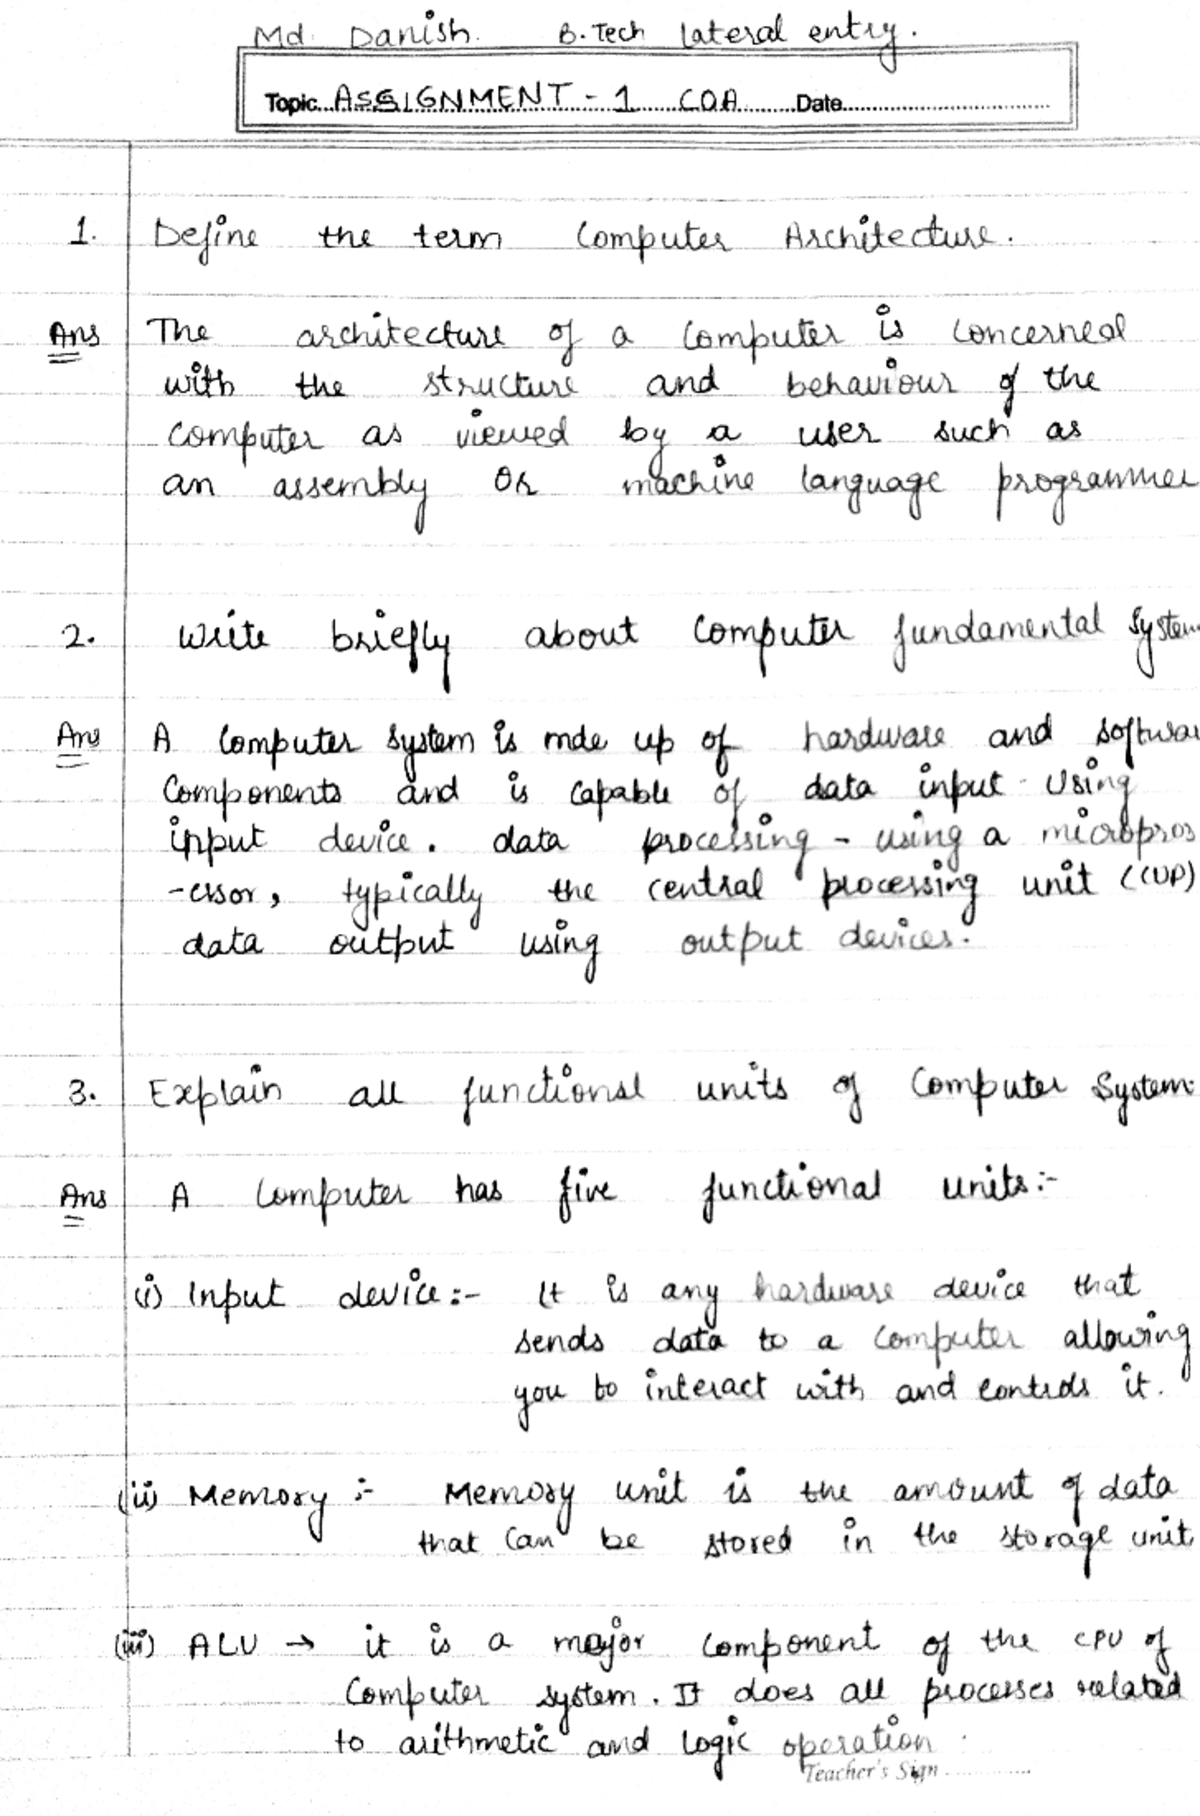 Md. Danish. B.Tech lateral entry.
Topic...ASSIGNMENT - 1 COA.......Date................................
1. Define the term Computer Architecture.
Ans The architecture of a computer is concerned
with the structure and behaviour of the
computer as viewed by a user such as
an assembly or machine language programmer
2. Write briefly about computer fundamental System.
Ans A computer system is mde up of hardware and softwar
Components and is capable of data input - Using
input device. data processing - using a micropros
-essor, typically the central processing unit (CUP)
data output using output devices.
3. Explain all functional units of Computer System:
Ans A Computer has five functional units:-
(i) Input device:- It is any hardware device that
sends data to a computer allowing
you to interact with and controls it.
(ii) Memory :- Memory unit is the amount of data
that can be stored in the storage unit
(iii) ALU → it is a major component of the CPU of
Computer system. It does all processes related
to arithmetic and logic operation
Teacher's Sign ..............